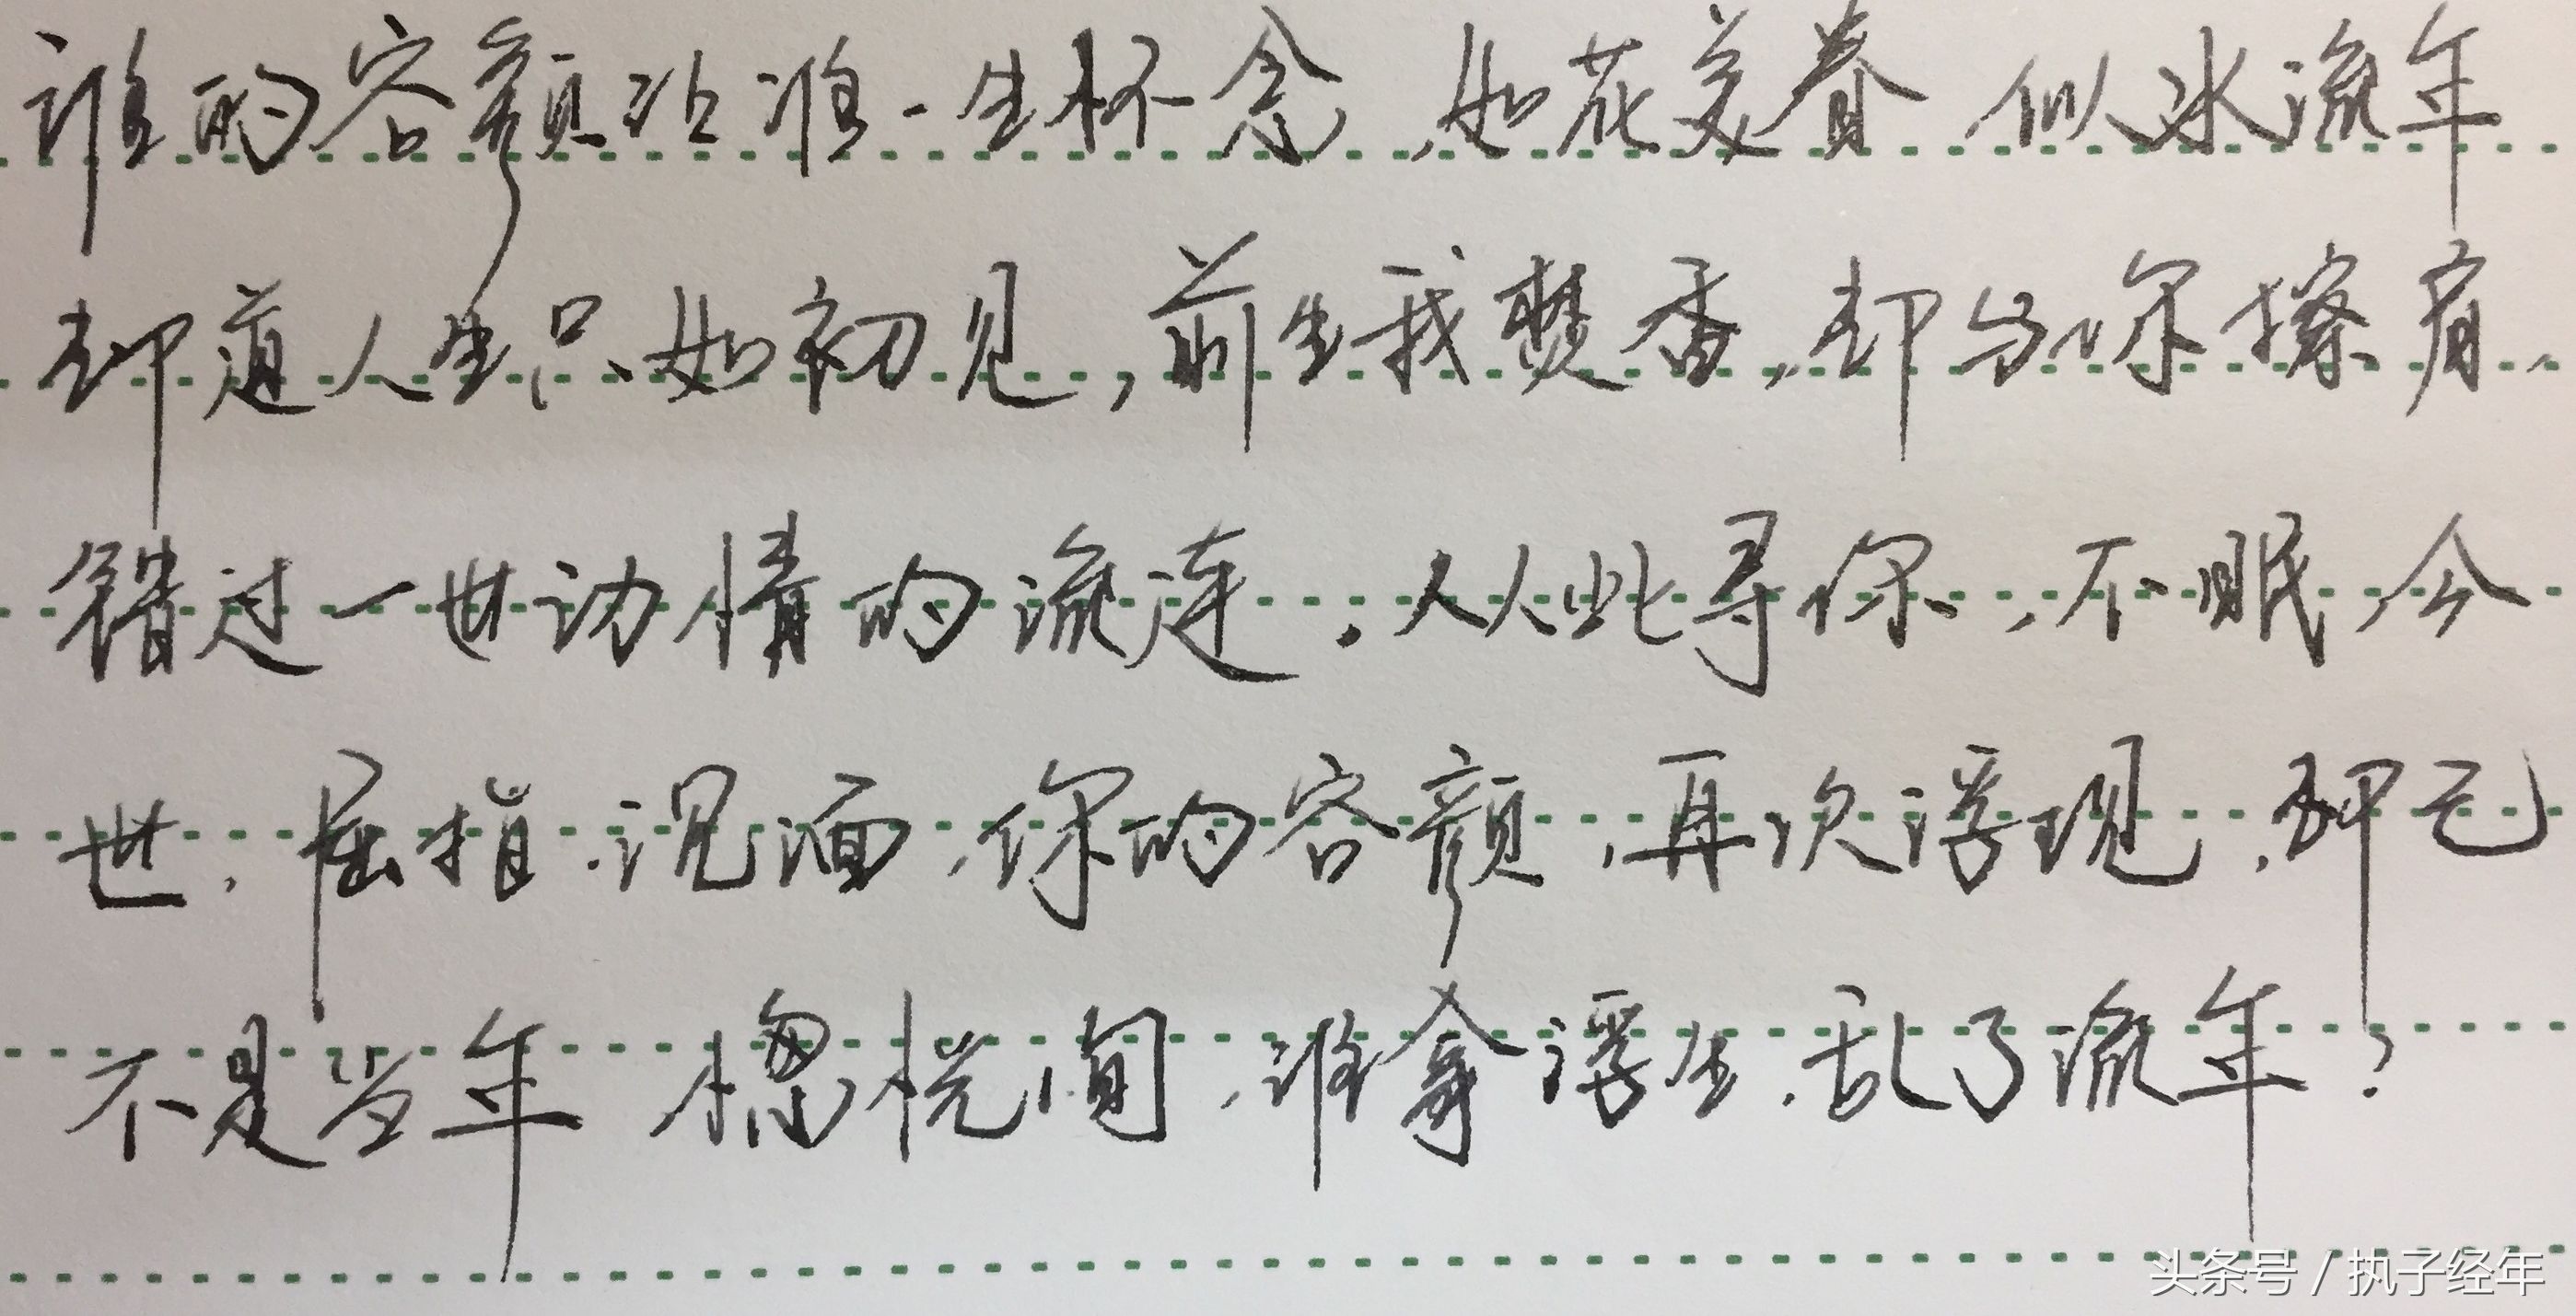 谁的容颜让谁一生怀念,如花美眷,似水流年
却道人生只如初见,前生我焚香,却与你擦肩,
错过一世讷情的流连,从此寻你,不眠,今
世,屈指沉湎,你的容颜,再次浮现,却已
不是当年 恍惚间,谁拿浮生,乱了流年?
头条号 / 执子经年